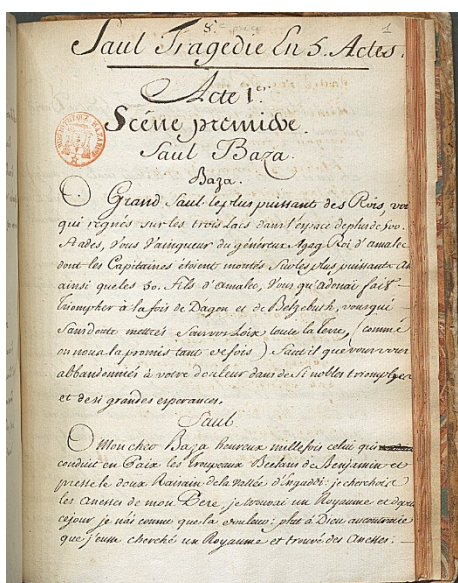 8.
1
Saul Tragedie En 5. Actes.
Acte 1.er
Scéne premiere.
Saul Baza.
Baza.
O Grand Saul le plus puissant des Rois, vous
qui regnés sur les trois Lacs dans l'espace de plus de 500.
Stades, Vous Vainqueur du généreux Agag Roi d'amalec
dont les Capitaines étoient montés Sur les plus puissants
ainsi que les 50. fils d'amalec, Vous qu'adonai fait
Triompher à la fois de Dagon et de Belzebuth, vous qui
Sans doute mettrés Sous vos Loix toute la terre, (comme
on nous l'a promis tant de fois) faut il que vous vous
abbandonniés à votre douleur dans de Si nobles triomphes
et de si grandes esperances.
Saul
O Mon cher Baza heureux mille fois celui qui
conduit en Paix les Troupeaux Beelans de Benjamin et
presse le doux Raisin de la Vallée d'Engaddi: je cherchois
les anesses de mon Pere, je trouvai un Royaume et depuis
ce jour je n'ai connu que la douleur: plut à Dieu au contraire
que j'eusse cherché un Royaume et trouvé des Anesses: